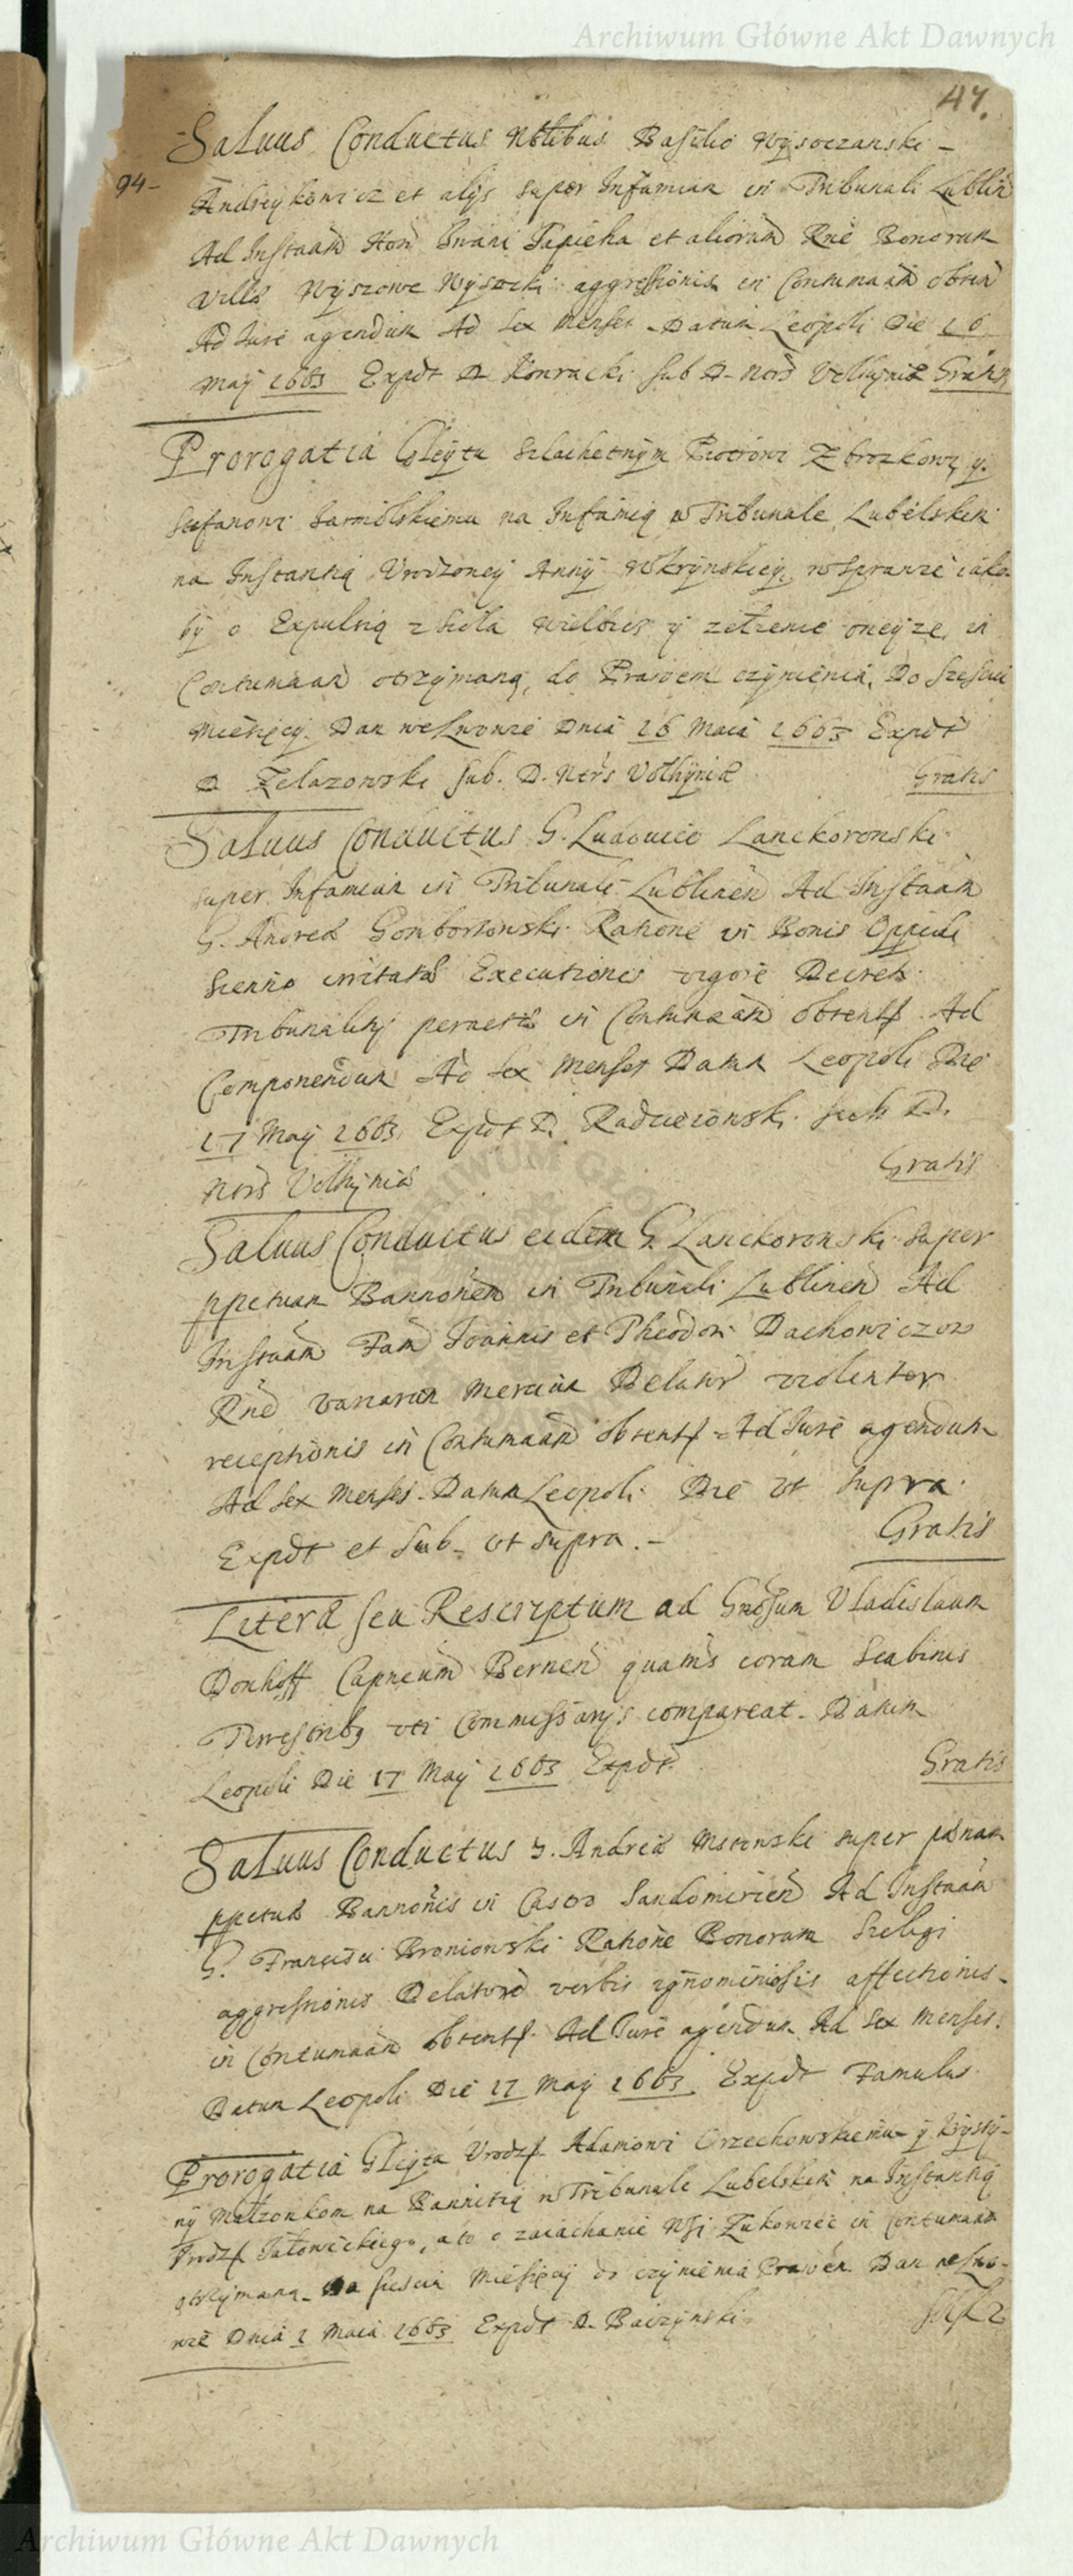 Archiwum Główne Akt Dawnych
47.
Saluus Conductus Nobilibus Basilio Wysoczanski -
94-
Andreykowicz et alijs super Infamiam in Tribunali Lublin
Ad Instaan Hon Iwani Sapieha et aliorum Rne Bonorum
Villæ Wyszowe Wysocki aggressionis in Contumaam obten
Ad Iure agendum Ad Sex Menses Datum Leopoli Die 16
May 1663 Expdt D Konracki sub D. Nors Volhyniæ Gratis
Prorogatia Gleytu Szlachetnym Piotrowi Zbrozkowi y
Stefanowi Sarmolskiemu na Infamią w Tribunale Lubelskim
na Instantią Vrodzoney Anny Skrynskiey w sprawie iako
by o Expulsią z Sioła y zelzenie oneyze in
Contumaam otrzymaną, do Prawem czynienia, Do Szesciu
Miesięcy. Dan we Lwowie Dnia 16 Maia 1663 Expdt
D Zelazowski sub. D. Nors Volhyniæ Gratis
Saluus Conductus G. Ludouico Lanckoronski
super Infamiam in Tribunali Lublinen Ad Instaam
G. Andreæ Gombortowski Ratione in Bonis Oppidi
Sienno irritatæ Executionis vigore Decreti
Tribunalitij peractæ in Contumaam obtent Ad
Componendum Ad sex Menses Datum Leopoli Die
17 May 1663 Expdt D. Radziezowski sub D.
Nors Volhyniæ Gratis
Saluus Conductus eidem G. Lanckoronski super
ppetuam Bannonem in Tribunali Lublinen Ad
Instaam Fam Joannis et Theodori Dachowiczow
Rne variarum Mercium Delator violenter
receptionis in Contumaam obtent Ad Iure agendum
Ad Sex Menses. Datum Leopoli Die vt supra
Expdt et Sub- vt supra. - Gratis
Literæ seu Rescriptum ad Gnosum Vladislaum
Donhoff Capneum Bernen quatnus coram Scabinis
Terrestribus vti Commissarijs compareat. Datum
Leopoli Die 17 May 1663 Expdt Gratis
Saluus Conductus G. Andreæ Mstowski super pœnam
ppetuæ Bannonis in Castro Sandomirien Ad Instaam
G. Francisci Broniowski Ratione Bonorum Szeligi
aggressionis Delatore verbis ignominiosis affectionis
in Contumaam obtent. Ad Iure agendum Ad Sex Menses.
Datum Leopoli Die 17 May 1663 Expdt Famulus
Prorogatia Gleytu Vrodz Adamowi Orzechowskiemu y Krysty-
ny Małzonkom na Bannitią w Tribunale Lubelskim na Instantią
Vrodz Jałowickiego, a to o zaiachanie Wsi Zukowiec in Contumaam
otrzymaną Do sześciu Miesięcy do czynienia Prawem Dan we Lwo-
wie Dnia 1 Maia 1663 Expdt D. Baczynski
Archiwum Główne Akt Dawnych